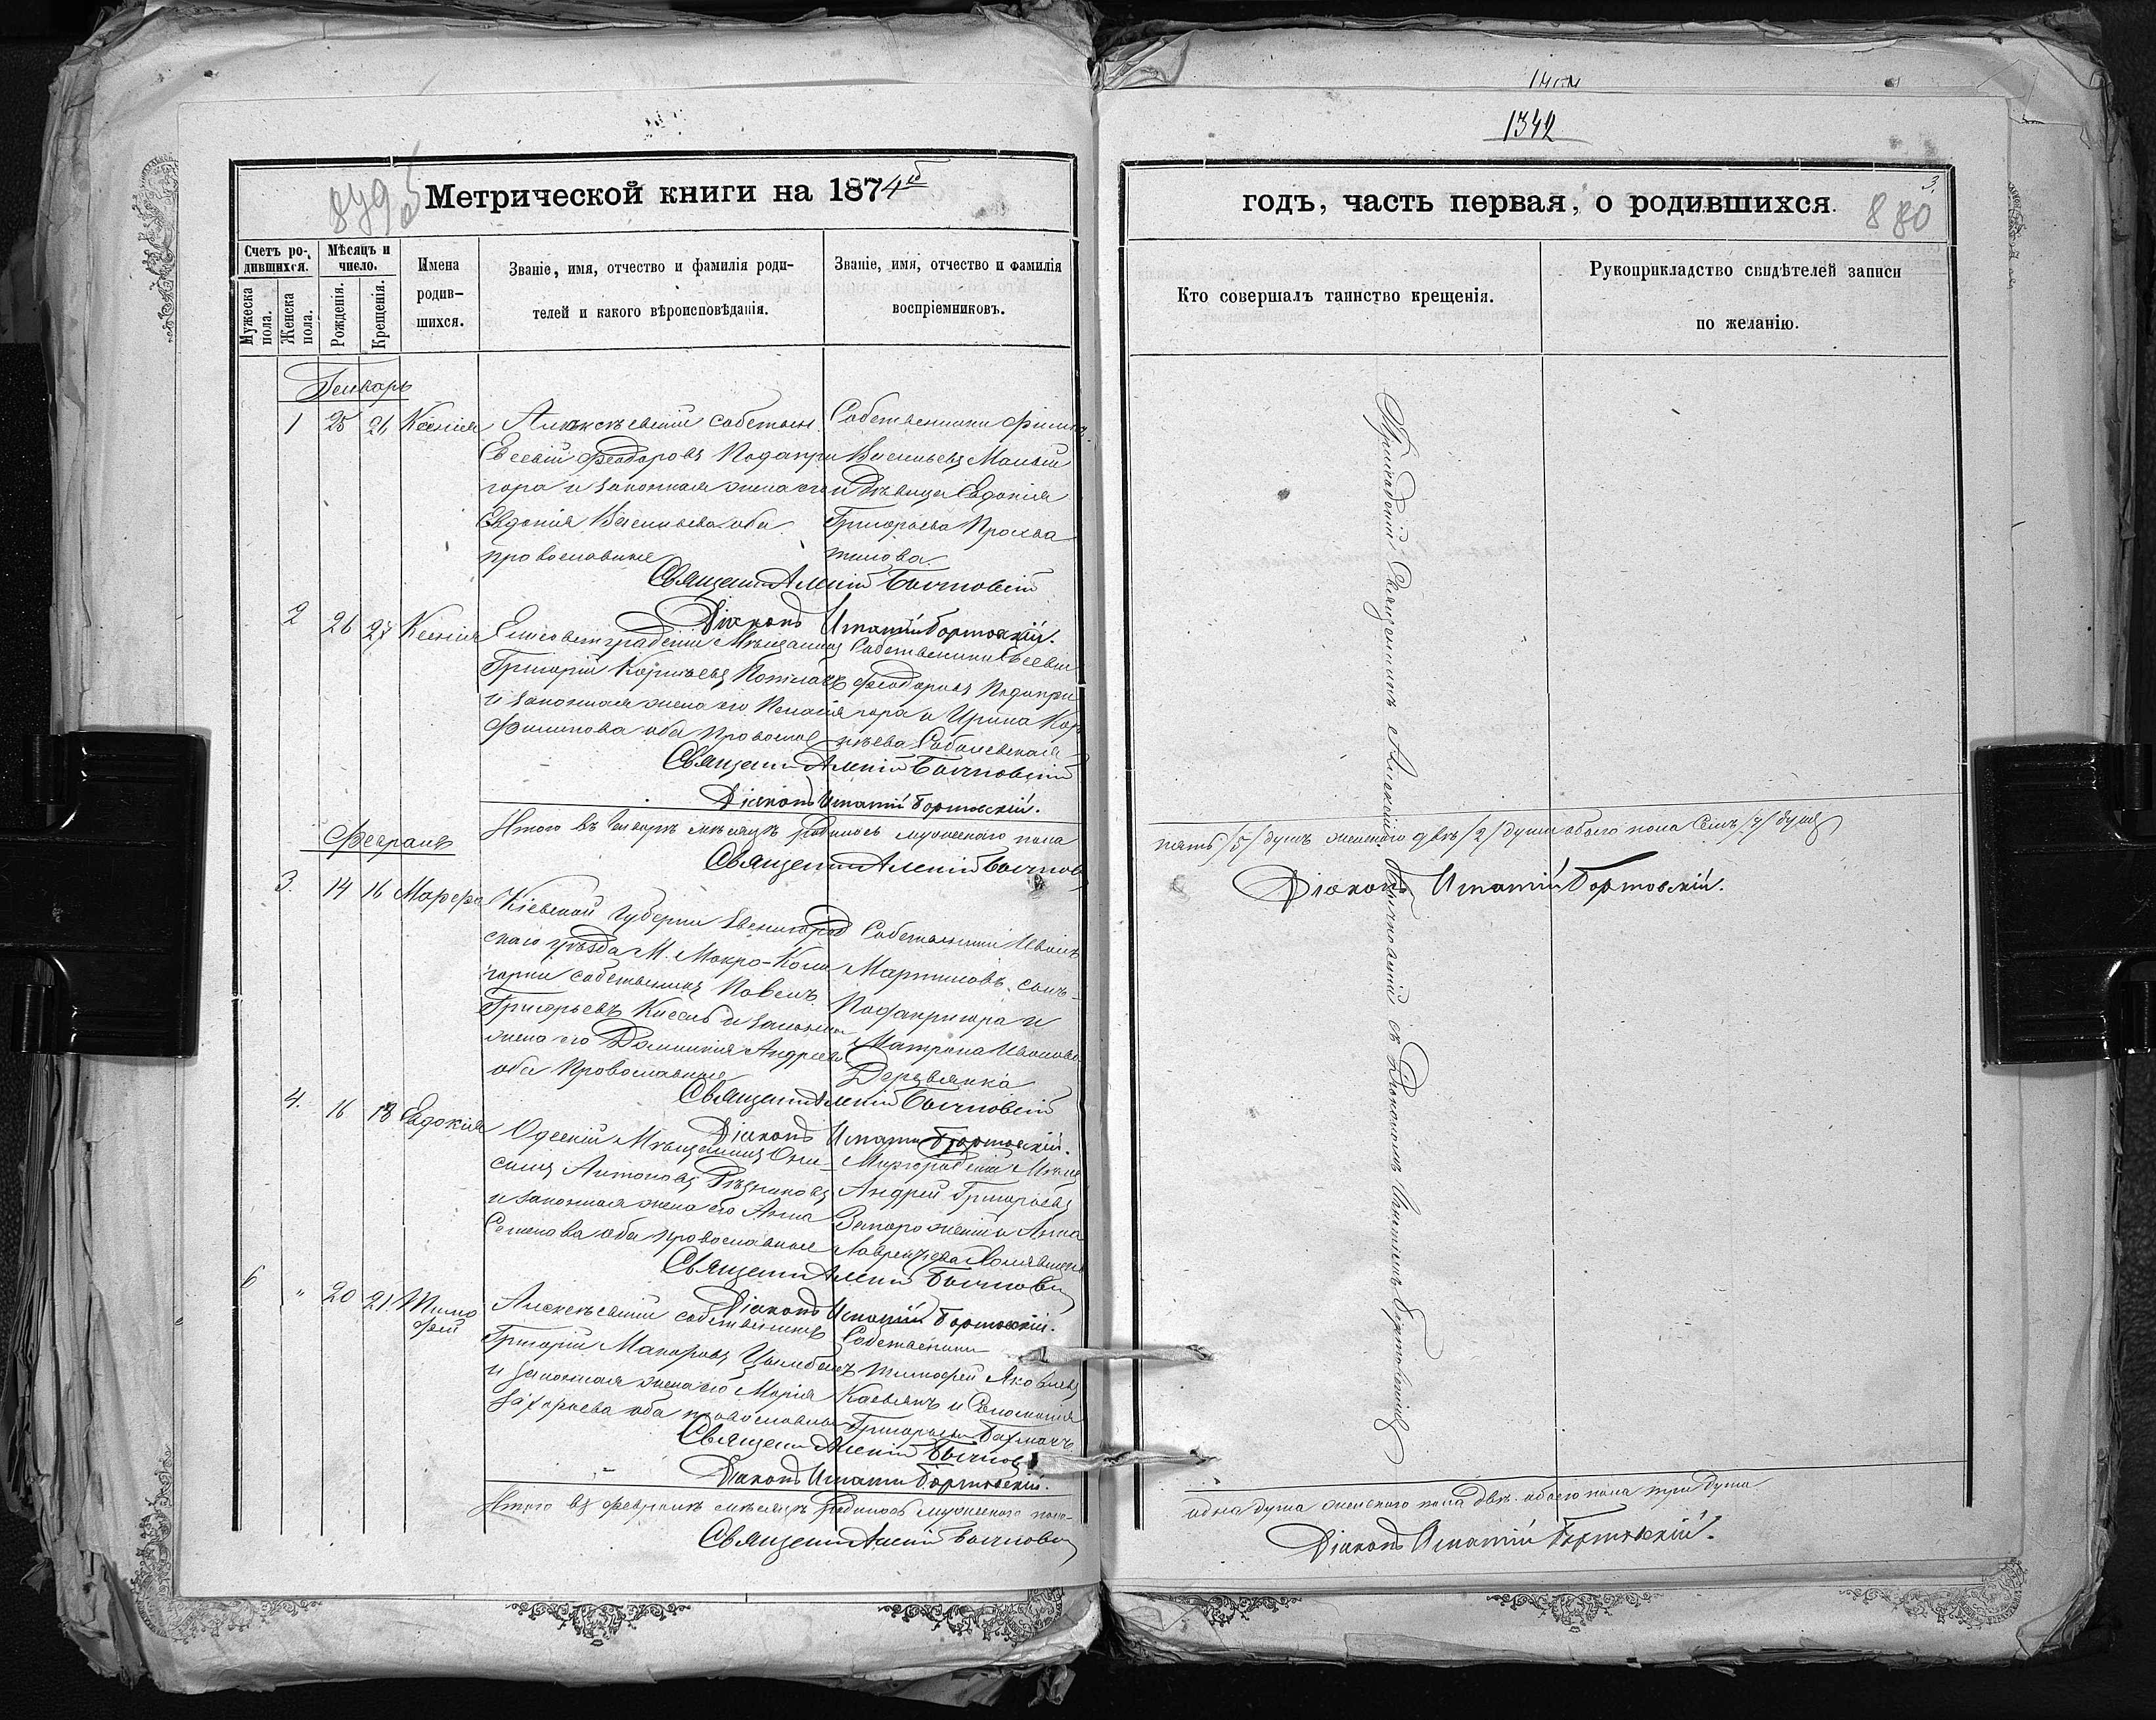 1342
8795
Метрической книги на 1874й
Счетъ родившихся.
Мѣсяцъ и число.
Мужеска пола.
Женска пола.
Рожденія.
Крещенія.
Имена родив-
шихся.
Званіе, имя, отчество и фамилія роди-
телей и какого вѣроисповѣданія.
Званіе, имя, отчество и фамилія
воспріемниковъ.
Генварь
1 25 26 Ксенія
Алексѣевскій собствен.
Евсевій Феодоровъ Подопри
гора и законная жена его
Евдокія Васильева оба
православные
Собственники Филипъ
Васильевъ Малый
и дѣвица Евдокія
Григорьева
Священ. Алексій Бычковскій
Діаконъ Игнатій Бортовскій.
2 26 27 Ксенія
Елисоветградскій Мѣщанинъ
Григорій Корнѣевъ
и законная жена его Пелагія
Филипова оба православ
Собственники Евсевій
Феодоровъ Подопри
гора и Ирина Кор
нѣева Соболевская
Священ. Алексій Бычковскій
Діаконъ Игнатій Бортовскій.
Итого въ Генварѣ мѣсяцѣ родилось мужескаго пола
Священ. Алексій Бычков
Февраль
3. 14 16 Марфа
Кіевской Губерніи Звенигород
скаго уѣзда М. Мокро-Коли
горки собственникъ Павелъ
Григорьевъ Кисель и законная
жена его Домникія Андреева
оба Православные
Собственники Иванъ
Мартиновъ сынъ
Подопригора и
Матрона Иванова
Деревянка
Священ. Алексій Бычковскій
Діаконъ Игнатій Бортовскій.
4. 16 18 Евдокія
Одескій Мѣщанинъ Они-
симъ Антоновъ Рѣзниковъ
и законная жена его Анна
Семенова оба православные
Миргородскій Мѣщ
Андрей Григорьевъ
Запорожскій и Анна
Лаврентьева
Священ. Алексій Бычковскій
Діаконъ Игнатій Бортовскій.
6 " 20 21 Тимо
фей
Алексѣевскій собственникъ
Григорій Макаровъ Цымбалъ
и законная жена его Марія
Захарьева оба православные
Собственники
Тимофей Яковлевъ
Касьянъ и Соломонія
Григорьева
Священ. Алексій Бычков
Діаконъ Игнатій Бортовскій.
Итого въ Февралѣ мѣсяцѣ родилось мужескаго пола
Священ. Алексій Бычковскій
годъ, часть первая, о родившихся.
3.
880
Кто совершалъ таинство крещенія.
Рукоприкладство свидѣтелей записи
по желанію.
Приходскій Священникъ Алексій Бычковскій съ Діакономъ Игнатіемъ Бортовскимъ
пять /5/ душъ женскаго двѣ /2/ души обоего пола Семь /7/ душъ
Діаконъ Игнатій Бортовскій.
одна душа женскаго пола двѣ обоего пола три души
Діаконъ Игнатій Бортовскій.